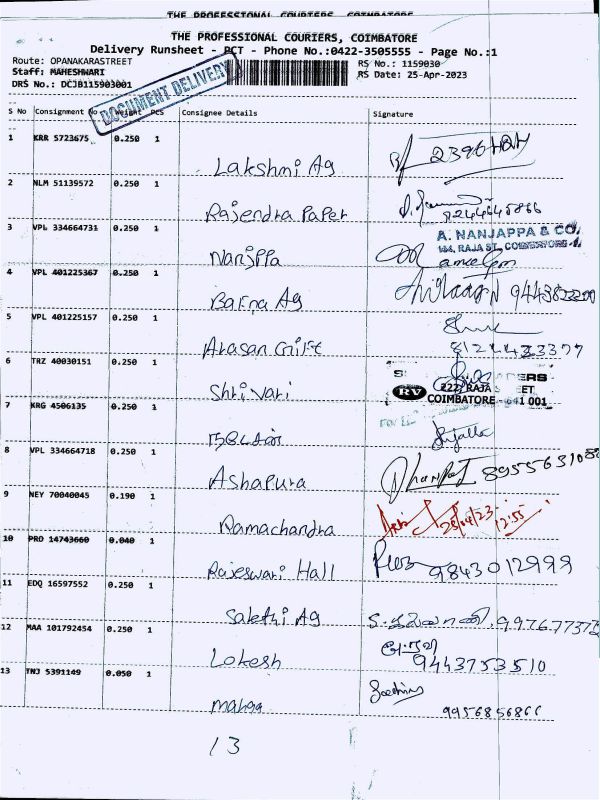 THE PROFESSIONAL COURIERS, COIMBATORE
THE PROFESSIONAL COURIERS, COIMBATORE
Delivery Runsheet - PCT - Phone No.:0422-3505555 - Page No.:1
Route: OPANAKARASTREET RS No.: 1159030
Staff: MAHESHWARI RS Date: 25-Apr-2023
DRS No.: DCJB115903001
DOCUMENT DELIVERY
S No Consignment No Weight PCS Consignee Details Signature
1 KRR 5723675 0.250 1
Lakshmi Ag
2 NLM 51139572 0.250 1
Rajendra Paper 8244645866
3 VPL 334664731 0.250 1 A. NANJAPPA & CO.
RAJA ST, COIMBATORE-1.
Nanjppa
4 VPL 401225367 0.250 1
Barna Ag
5 VPL 401225157 0.250 1
Arasan Gift 8124433377
6 TRZ 40030151 0.250 1 RV 222, RAJA STREET
COIMBATORE - 641 001
Shri Vari
7 KRG 4506135 0.250 1
8 VPL 334664718 0.250 1
Ashapura Dhanpat
9 NEY 70040045 0.190 1
Ramachandra 25/04/23 12:55
10 PRO 14743660 0.040 1
Rajeswari Hall 9843012999
11 EDQ 16597552 0.250 1
Sakthi Ag
12 MAA 101792454 0.250 1
Lokesh 9443753510
13 TNJ 5391149 0.050 1
9956856866
13